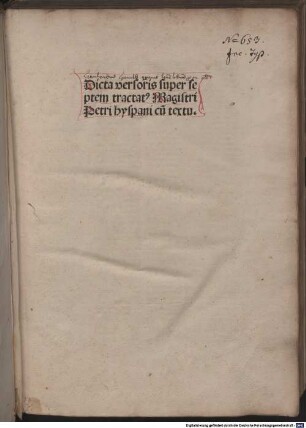 No 653.
Inc. typ.
Dicta versoris super se
ptem tractatꝰ Magistri
Petri hyspani cū textu.
Digitalisierung gefördert durch die Deutsche Forschungsgemeinschaft